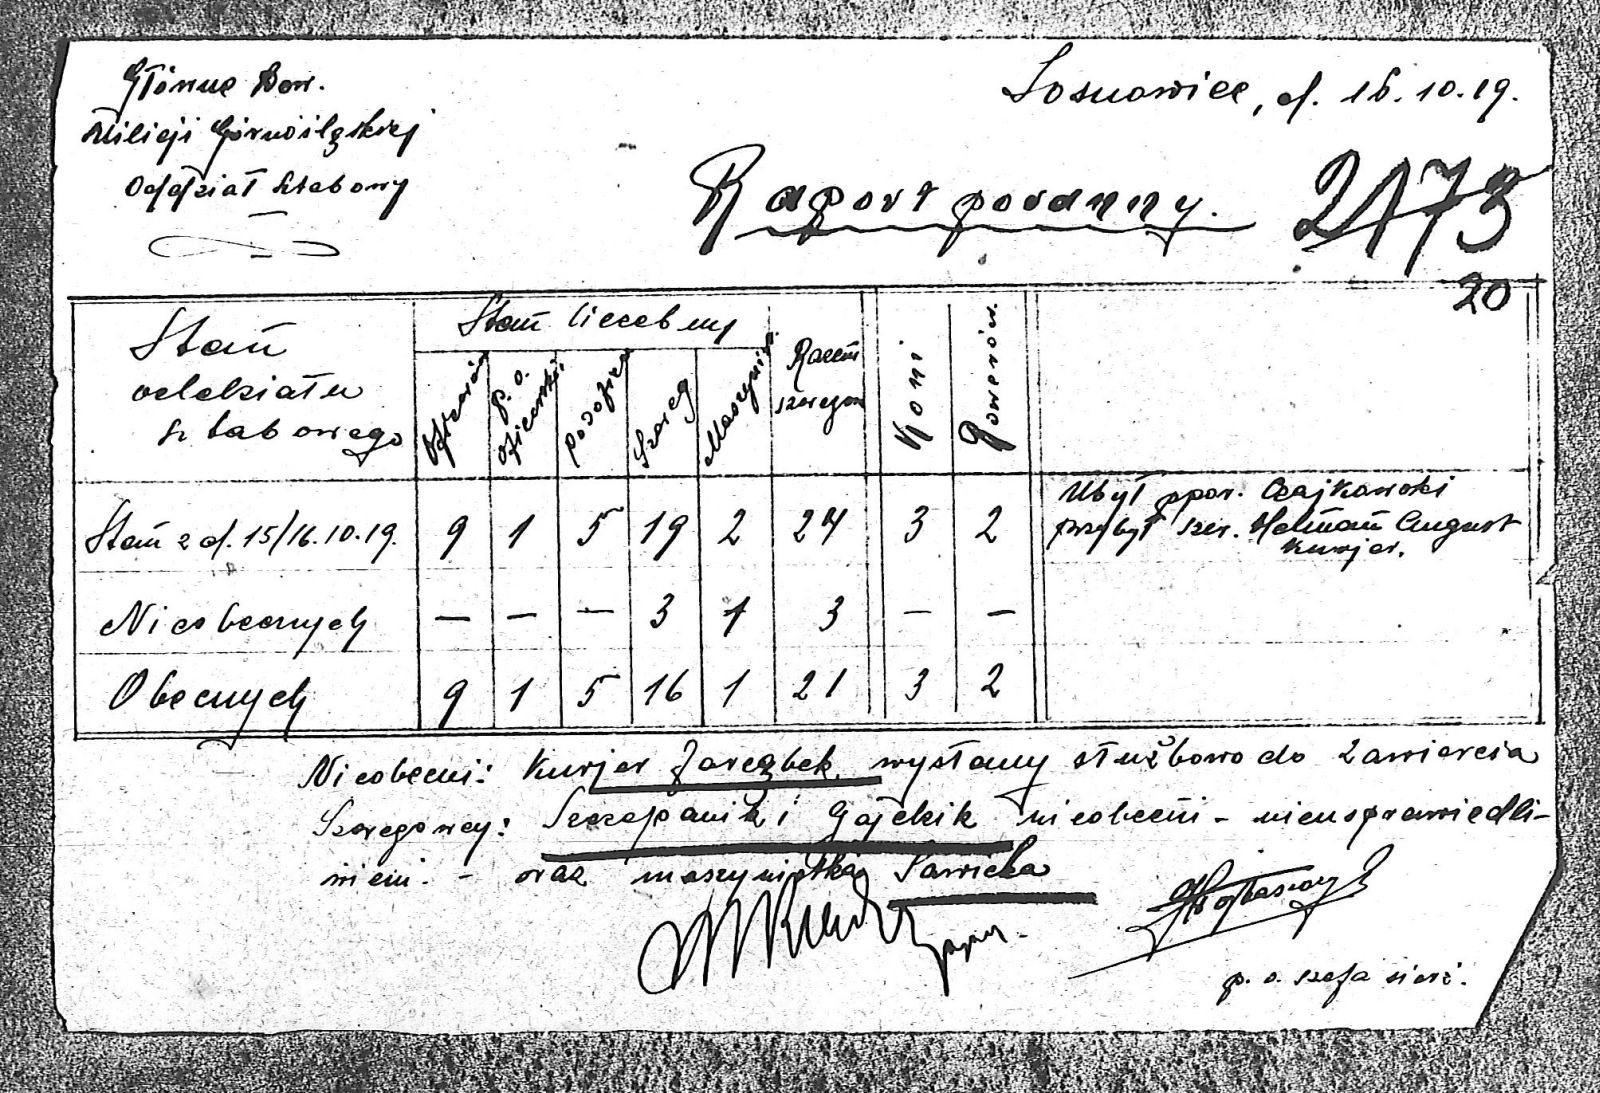 Główne Dow.
Milicji Górnośląskiej
Oddział Sztabowy
Sosnowiec, d. 16.10.19.
Raport poranny.
2173
20
Stan oddziału sztabowego
Stan liczebny
Oficerów
p. o. oficerskie
podofice
Szereg
Maszynist.
Razem szeregow
Koni
Powozów.
Stan z d. 15/16.10.19. 9 1 5 19 2 24 3 2
Ubył ppor. Czajkowski
przybył szer. Helman August
kurjer.
Nieobecnych — — — 3 1 3 — —
Obecnych 9 1 5 16 1 21 3 2
Nieobecni: Kurjer Jarząbek, wysłany służbowo do Zawiercia
Szeregowcy: Szczepanik i Gajdzik nieobecni - nieusprawiedli-
wieni. - oraz maszynistka Sawicka
ppor.
p. o. szefa sierż.